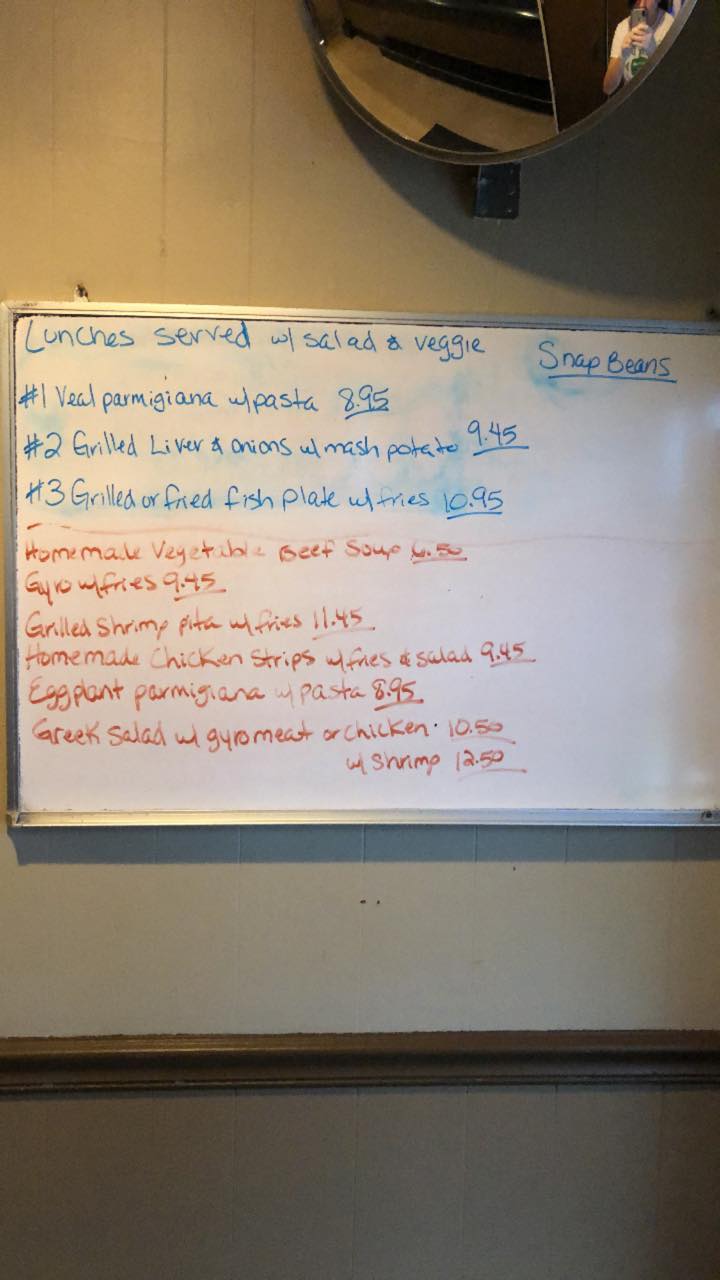 Lunches served w/ salad & veggie
Snap Beans
#1 Veal parmigiana w/pasta 8.95
#2 Grilled Liver & onions w/ mash potato 9.45
#3 Grilled or fried fish plate w/ fries 10.95
Homemade Vegetable Beef Soup 6.50
Gyro w/fries 9.45
Grilled Shrimp pita w/ fries 11.45
Homemade Chicken Strips w/ fries & salad 9.45
Eggplant parmigiana w/ pasta 8.95
Greek Salad w/ gyro meat or chicken · 10.50
w/ Shrimp 12.50